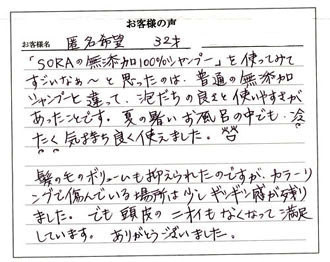 お客様の声
お客様名 匿名希望 32才
「SORAの無添加100%シャンプー」を使ってみて
すごいなぁ〜と思ったのは、普通の無添加
シャンプーと違って、泡だちの良さと使いやすさが
あったことです。夏の暑いお風呂の中でも、冷
たく気持ち良く使えました。
髪の毛のボリュームも抑えられたのですが、カラーリ
ングで傷んでいる場所は少しギシギシ感が残り
ました。でも頭皮のニオイもなくなって満足
しています。ありがとうございました。